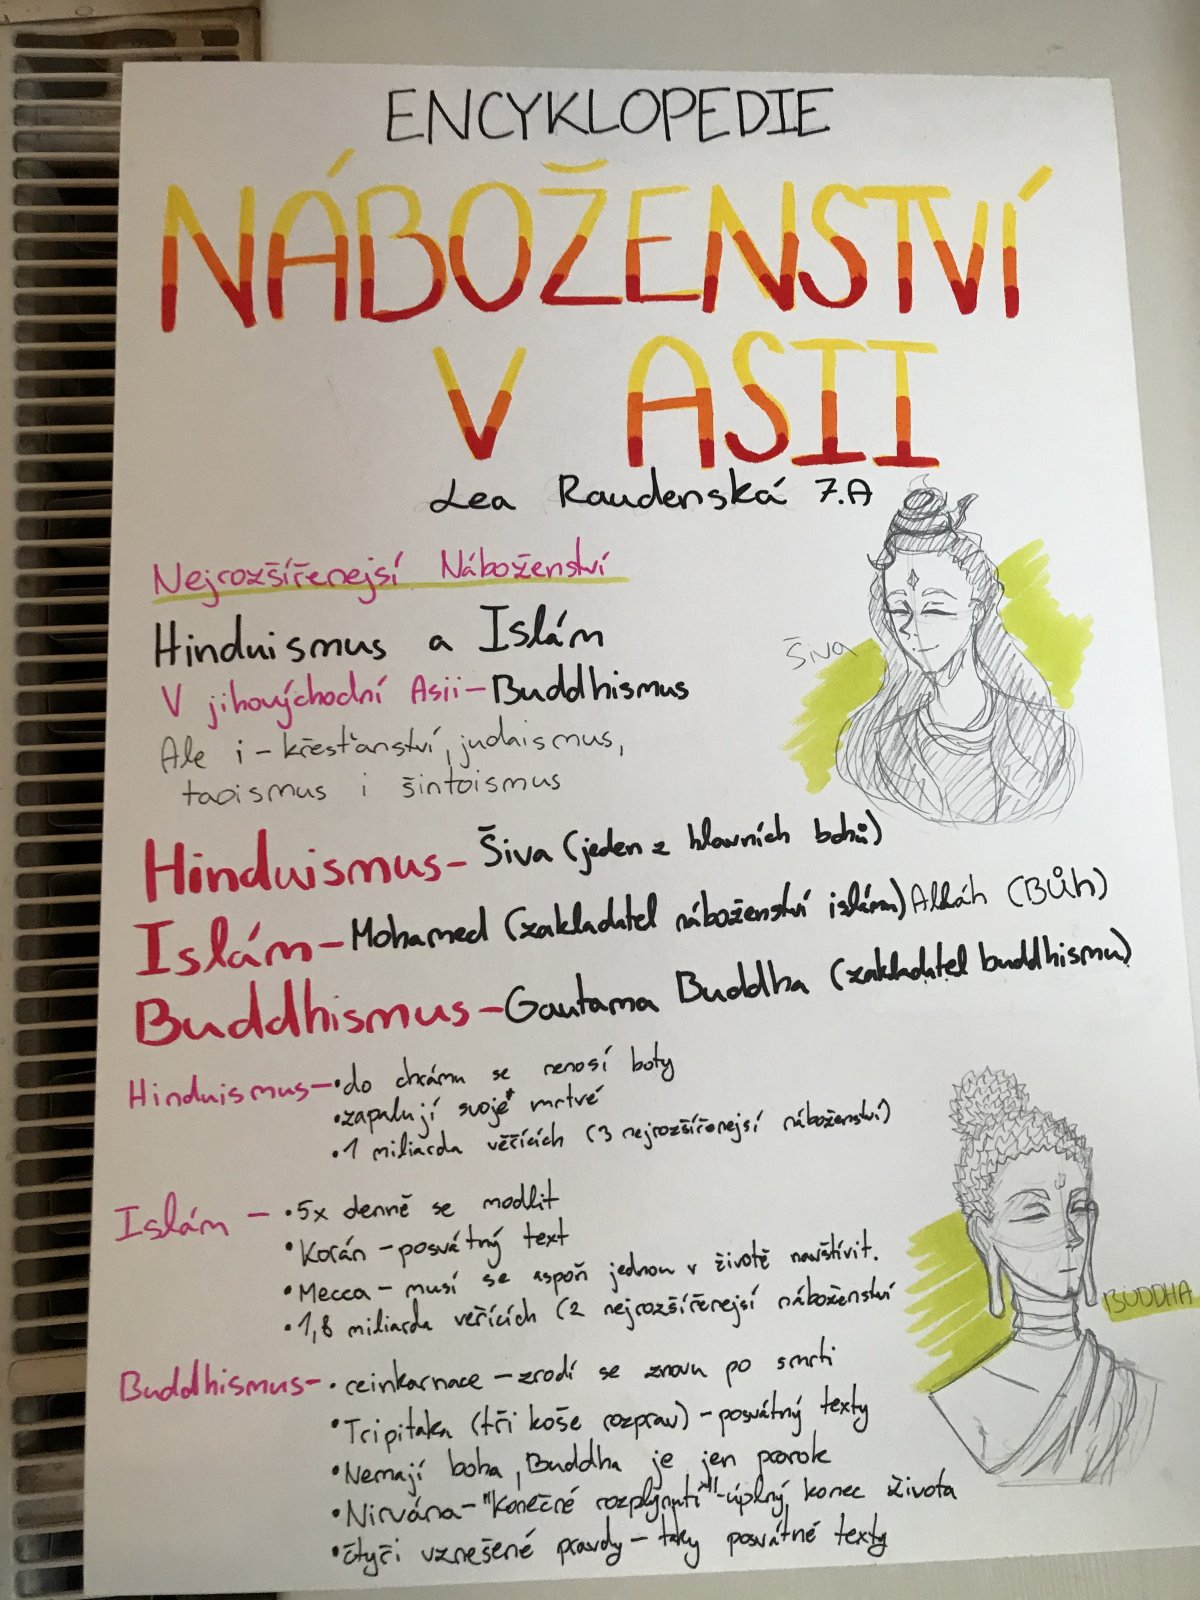 ENCYKLOPEDIE
NÁBOŽENSTVÍ
V ASII
Lea Raudenská 7.A
Nejrozšířenejsí Náboženství
Hinduismus a Islám
V jihovýchodní Asii-Buddhismus
Ale i-křesťanství, judaismus,
taoismus i šintoismus
Šiva
Hinduismus-Šiva (jeden z hlavních bohů)
Islám-Mohamed (zakladatel náboženství islám) Alláh (Bůh)
Buddhismus-Gautama Buddha (zakladatel buddhismu)
Hinduismus-•do chrámu se nenosí boty
•zapalují svoje mrtvé
•1 miliarda věřících (3 nejrozšířenejsí náboženství)
Islám - •5x denně se modlit
•Korán-posvátný text
•Mecca-musí se aspoň jednou v životě navštívit.
•1,8 miliarda věřících (2 nejrozšířenejsí náboženství
BUDDHA
Buddhismus-•reinkarnace-zrodí se znovu po smrti
•Tripitaka (tři koše rozprav)-posvátný texty
•Nemají boha, Buddha je jen prorok
•Nirvána-"konečné rozplynutí"-úplný konec života
•čtyři vznešené pravdy-taky posvátné texty